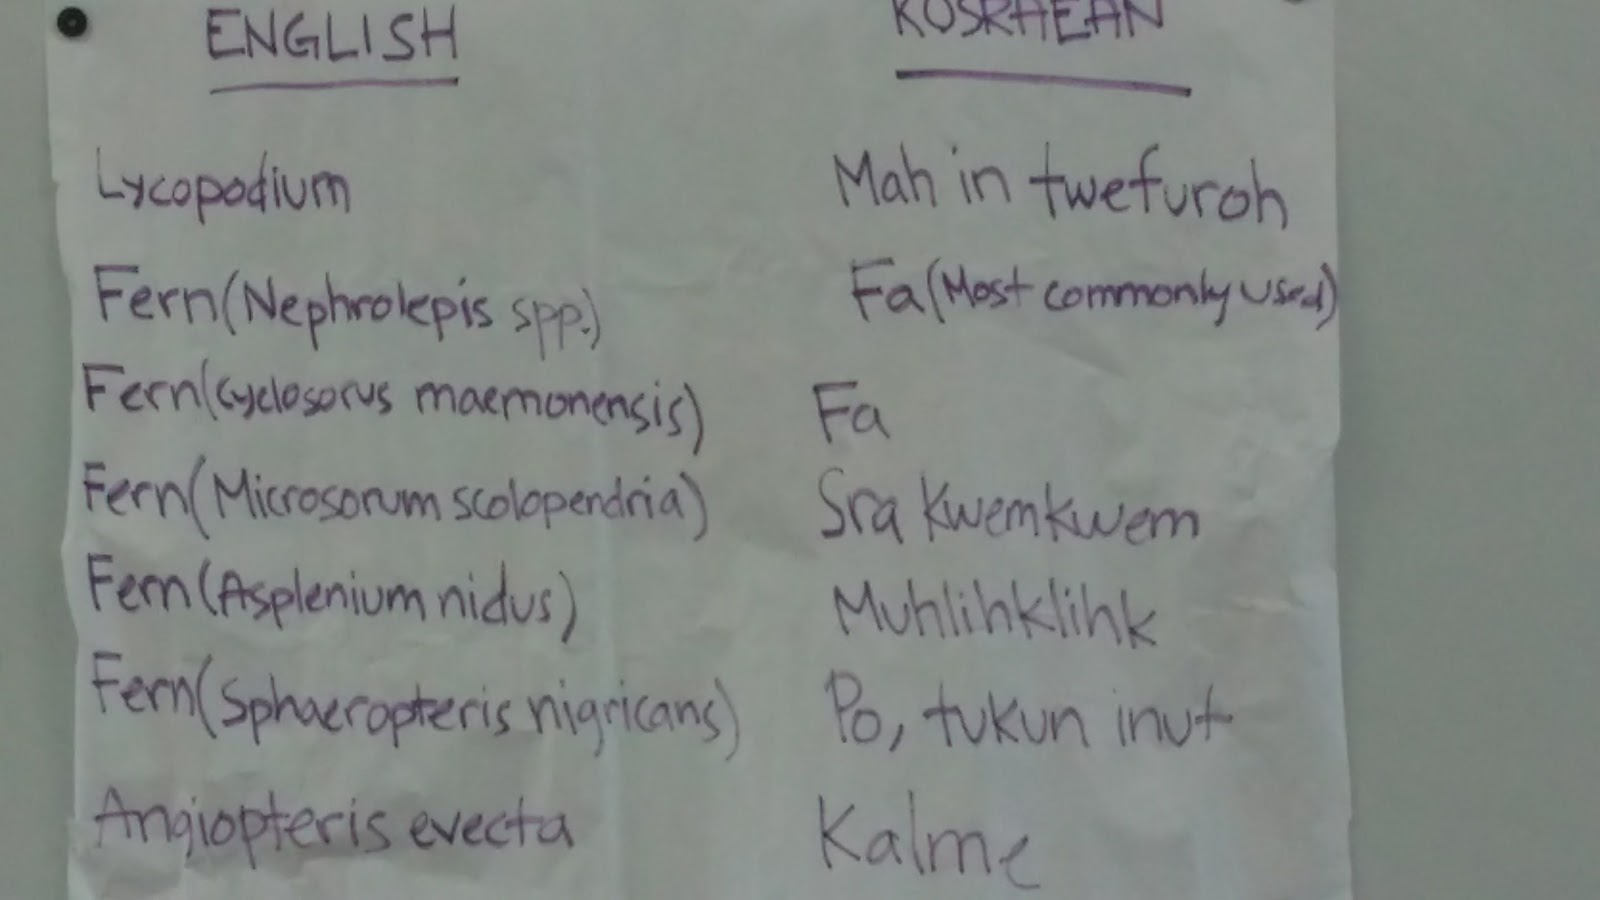 ENGLISH KOSRAEAN
Lycopodium Mah in twefuroh
Fern(Nephrolepis spp.) Fa(Most commonly used)
Fern(Cyclosorus maemonensis) Fa
Fern(Microsorum scolopendria) Sra kwemkwem
Fern(Asplenium nidus) Muhlihklihk
Fern(Sphaeropteris nigricans) Po, tukun inut
Angiopteris evecta Kalme